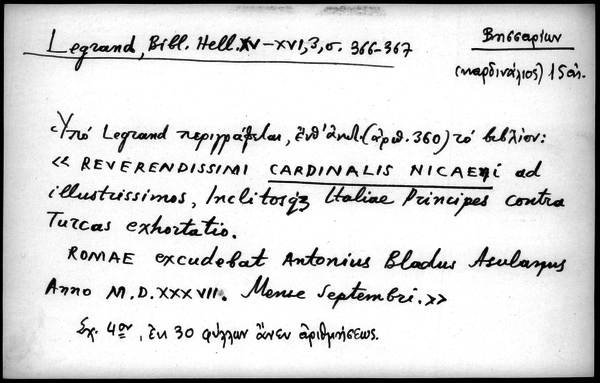 Legrand, Bibl. Hell. XV–XVI, 3, σ. 366-367
Βησσαρίων
(καρδινάλιος) 15 αἰ.
Ὑπό Legrand περιγράφεται, (ἀριθ. 360) τό βιβλίον:
« REVERENDISSIMI CARDINALIS NICAENI ad
illustrissimos, Inclitosqz Italiae Principes contra
Turcas exhortatio.
ROMAE excudebat Antonius Bladus Asulanus
Anno M.D.XXXVII. Mense Septembri.»
Σχ. 4ον, ἐκ 30 φύλλων ἄνευ ἀριθμήσεως.